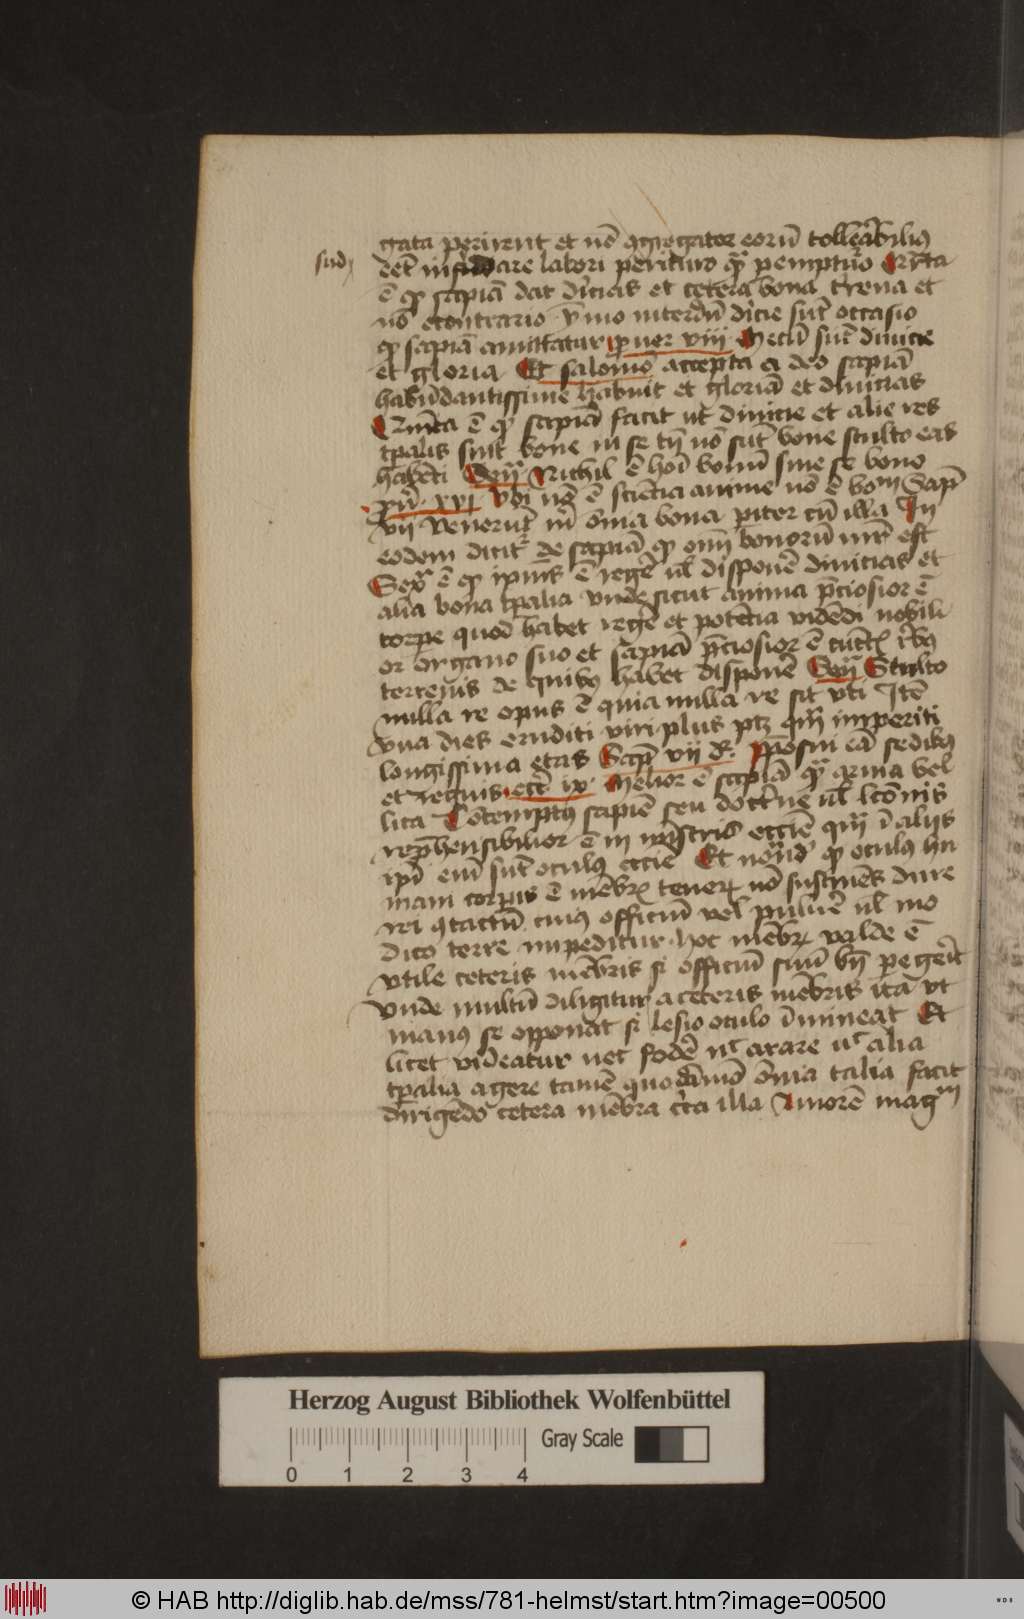 gata perirent et nō aggregator eorū tollerabilius
sud
eēt insudare labori perituro qͣ pempturo Qrta
ē qꝫ sapiā dat diicias et cetera bona trena et
nō econtrario ymo interdū dicie sūt occasio
qꝫ sapiā amittatur prouer viii Mecū sūt diuicie
et gloria Et salomō accepta a deo sapiā
habūdantissime habuit et gloriā et diuicias
Qnita ē qꝫ sapiā facit ut diuicie et alie res
tpalis sint bone in se tn̄ nō sūt bone stulto eas
habēti Seneͣ Nichil ē hoī bonū sine se bono
prū xxi Vbi nō ē sciētia anime nō ē bonū Sap
vii Venerūt m̄ ōnia bona piter cū illa In
eodem dicitr de sapiā qꝫ oīm bonorū mr̄ est
Sexͣ ē qꝫ ipius ē regē ul̄ disponē diuicias et
alia bona tpalia unde sicut anima pciosior ē
corpe quod habet regē et potētia vidēdi nobili
or organo suo et sapiā pciosior ē cūctꝭ rebꝫ
terrenis de quibꝫ habet disponē Seneͣ Stulto
nulla re opus ē quia nulla re sit uti Itē
vna dies eruditi viri plus ptꝫ qm̄ imperiti
longissima etas Sap vii d. pposui eā sedibꝫ
et regnis ecc̄ ix Melior ē sapiā qͣ arma bel
lica Cōtemptꝫ sapiē seu doctrine ul̄
reprehensibilior ē in mistris eccīe qm̄ ī aliis
ipi enī sūt oculꝫ eccīe Et notād qꝫ oculus hu
mani corpis ē mēbrꝫ tenerꝫ nō sustinēs dure
rei ɔtactū cuius officiū vel puluē ul̄ mo
dico terre impeditur hoc mēbrꝫ valde ē
vtile ceteris mēbris si officiū suū bn̄ pegerit
Vnde multū diligitur a ceteris mēbris ita ut
manꝫ se opponat si lesio oculo īmineat Et
licet videatur nec fodē nͨ arare nͨ alia
tpalia agere tamē quodāmō ōnia talia facit
dirigēdo cetera mēbra circa illa Amorē mag
Herzog August Bibliothek Wolfenbüttel
Gray Scale
0 1 2 3 4
© HAB http://diglib.hab.de/mss/781-helmst/start.htm?image=00500